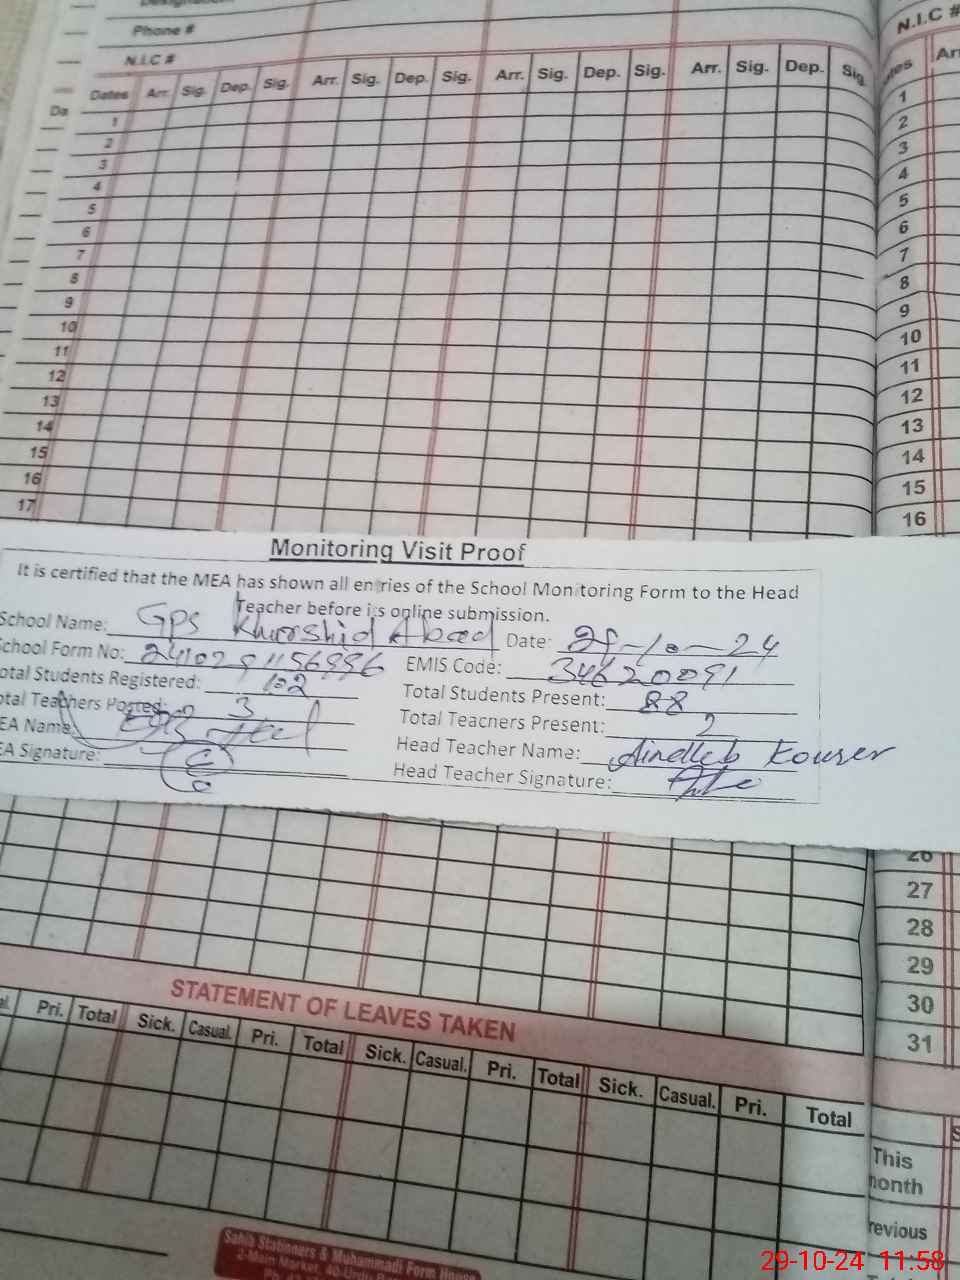 Phone #
N.I.C #
N.I.C #
Dates Arr. Sig. Dep. Sig. Arr. Sig. Dep. Sig. Arr. Sig. Dep. Sig. Arr. Sig. Dep. Sig.
Da
1
2
3
4
5
6
7
8
9
10
11
12
13
14
15
16
17
Arr
1
2
3
4
5
6
7
8
9
10
11
12
13
14
15
16
Monitoring Visit Proof
It is certified that the MEA has shown all entries of the School Monitoring Form to the Head
Teacher before its online submission.
School Name: GPS Khurshid Abad Date: 29-10-24
School Form No: EMIS Code: 34620091
Total Students Registered: 102 Total Students Present: 88
Total Teachers Posted: 3 Total Teachers Present: 2
EA Name: Head Teacher Name: Kouser
EA Signature: Head Teacher Signature:
26
27
28
29
30
31
STATEMENT OF LEAVES TAKEN
Pri. Total Sick. Casual. Pri. Total Sick. Casual. Pri. Total Sick. Casual. Pri. Total
This
month
revious
Sahib Stationers & Muhammadi Form House
2-Main Market, 40-Urdu
29-10-24 11:58